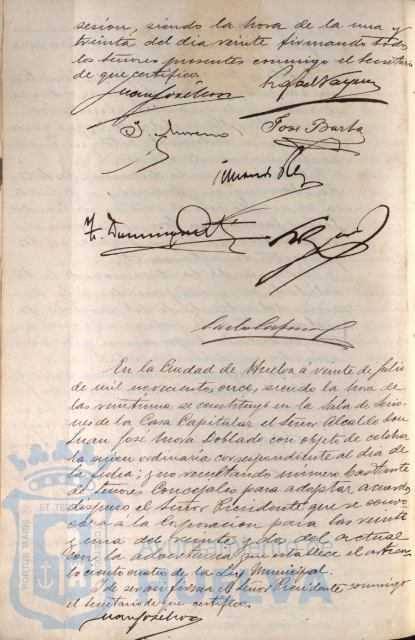 sesión, siendo la hora de la una y
treinta del dia veinte firmando todos
los señores presentes conmigo el Secretario
de que certifico.
Juan José Mora Rafael Vazquez
J. Moreno José Barba
F. Dominguez
En la Ciudad de Huelva á veinte de Julio
de mil novecientos once, siendo la hora de
las veintiuna, se constituyó en la Sala de Sesio-
nes de la Casa Capitular el Señor Alcalde Don
Juan José Mora Doblado con objeto de celebrar
la sesion ordinaria correspondiente al dia de
la fecha; y no reuniendo número bastante
de Señores Concejales para adoptar acuerdo
dispuso el Señor Presidente que se convo
cara á la Corporacion para las veinte
y una del veinte y dos del actual
con la advertencia que establece el artícu-
lo ciento cuatro de la Ley Municipal.
Y de ser así firma el Señor Presidente conmigo
el Secretario de que certifico.
Juan José Mora
PORTUS MARIS ET TER
HUELVA